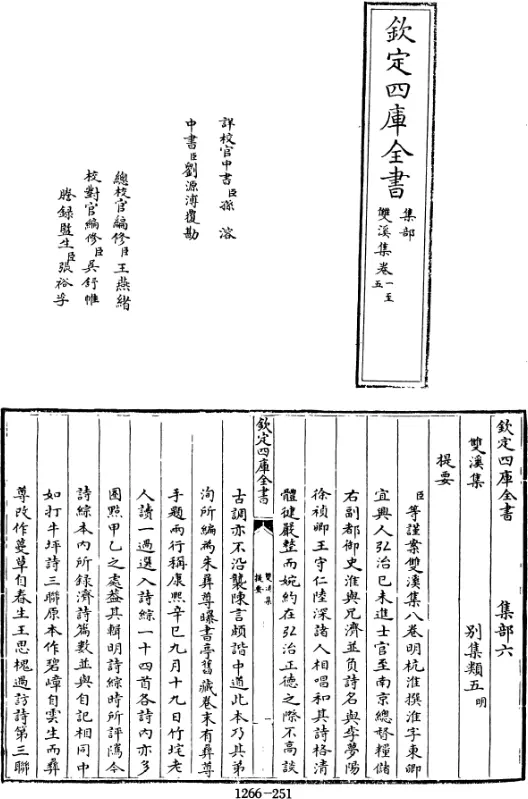 欽定四庫全書
集部
雙溪集卷一至五
詳校官中書臣孫溶
中書臣劉源溥覆勘
總校官編修臣王燕緒
校對官編修臣吳舒帷
謄錄監生臣張裕孚
欽定四庫全書
集部六
雙溪集
別集類五明
提要
臣等謹案雙溪集八卷明杭淮撰淮字東卿
宜興人弘治己未進士官至南京總督糧儲
右副都御史淮與兄濟並負詩名與李夢陽
徐禎卿王守仁陸深諸人相唱和其詩格清
體健嚴整而婉約在弘治正德之際不高談
欽定四庫全書
雙溪集
提要
一
古調亦不沿襲陳言頗諧中道此本乃其弟
洵所編為朱彝尊曝書亭舊藏卷末有彝尊
手題兩行稱康熙辛巳九月十九日竹垞老
人讀一過選入詩綜一十四首各詩內亦多
圈㸃甲乙之處蓋其輯明詩綜時所評隲今
詩綜本內所錄濟詩篇數並與自記相同中
如打牛坪詩三聯原本作碧嶂自雲生而彝
尊改作蔓草自春生王思槐過訪詩第三聯
1266-251